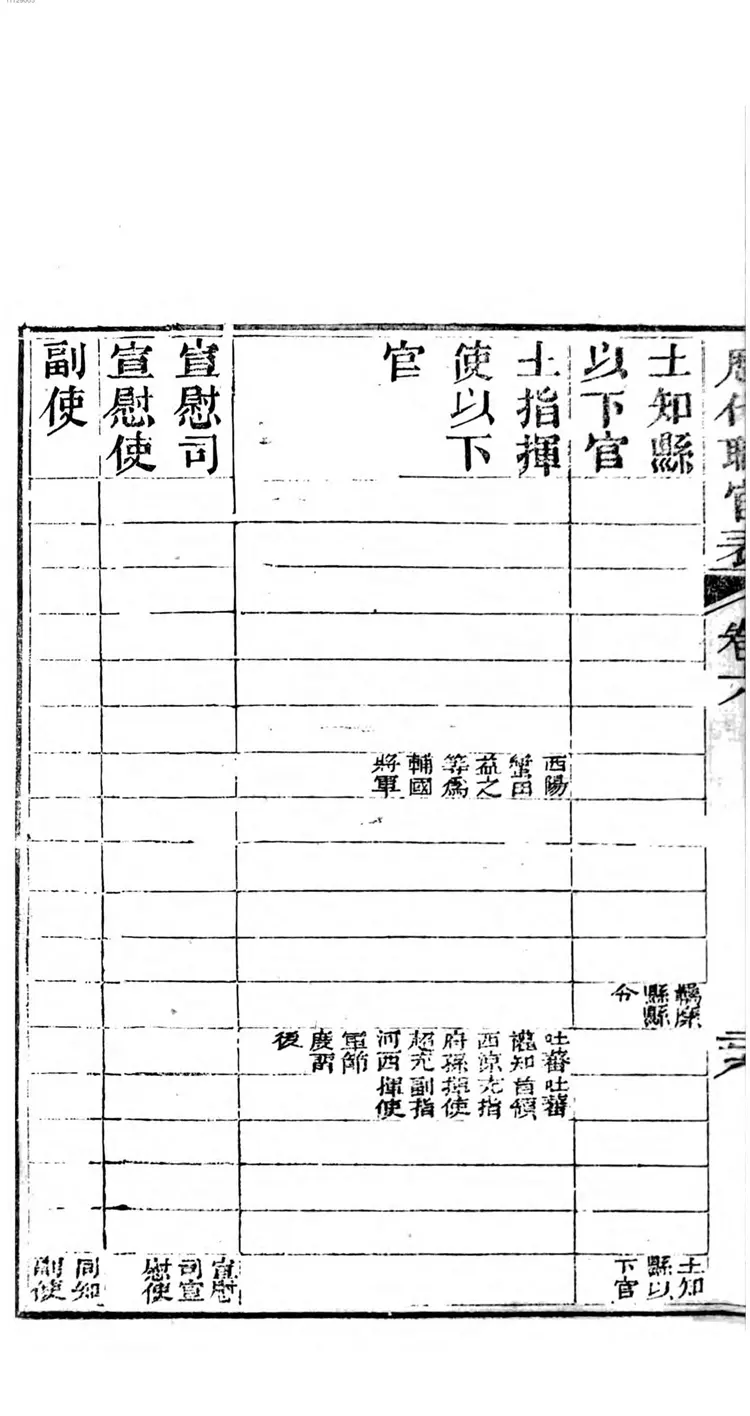 歷代職官表
卷六
土知縣
以下官
縣縣
令
土知
縣以
下官
土指揮
使以下
官
西陽
蠻田
益之
等為
輔國
將軍
吐蕃
瓏知
西涼
府孫
超充
河西
軍節
度留
後
吐蕃
首領
充指
揮使
副指
揮使
宣慰司
宣慰使
宣慰
司宣
慰使
副使
同知
副使